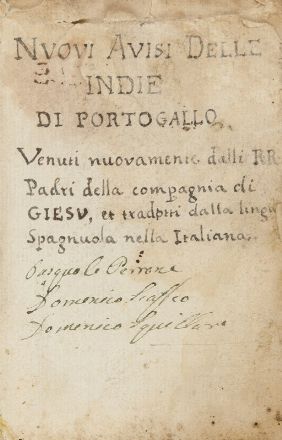 NVOVI AVISI DELLE
INDIE
DI PORTOGALLO
Venuti nuovamente dalli RR
Padri della compagnia di
GIESV, et tradotti dalla lingu
Spagnuola nella Italiana.
Pasquale Perrone
Domenico
Domenico